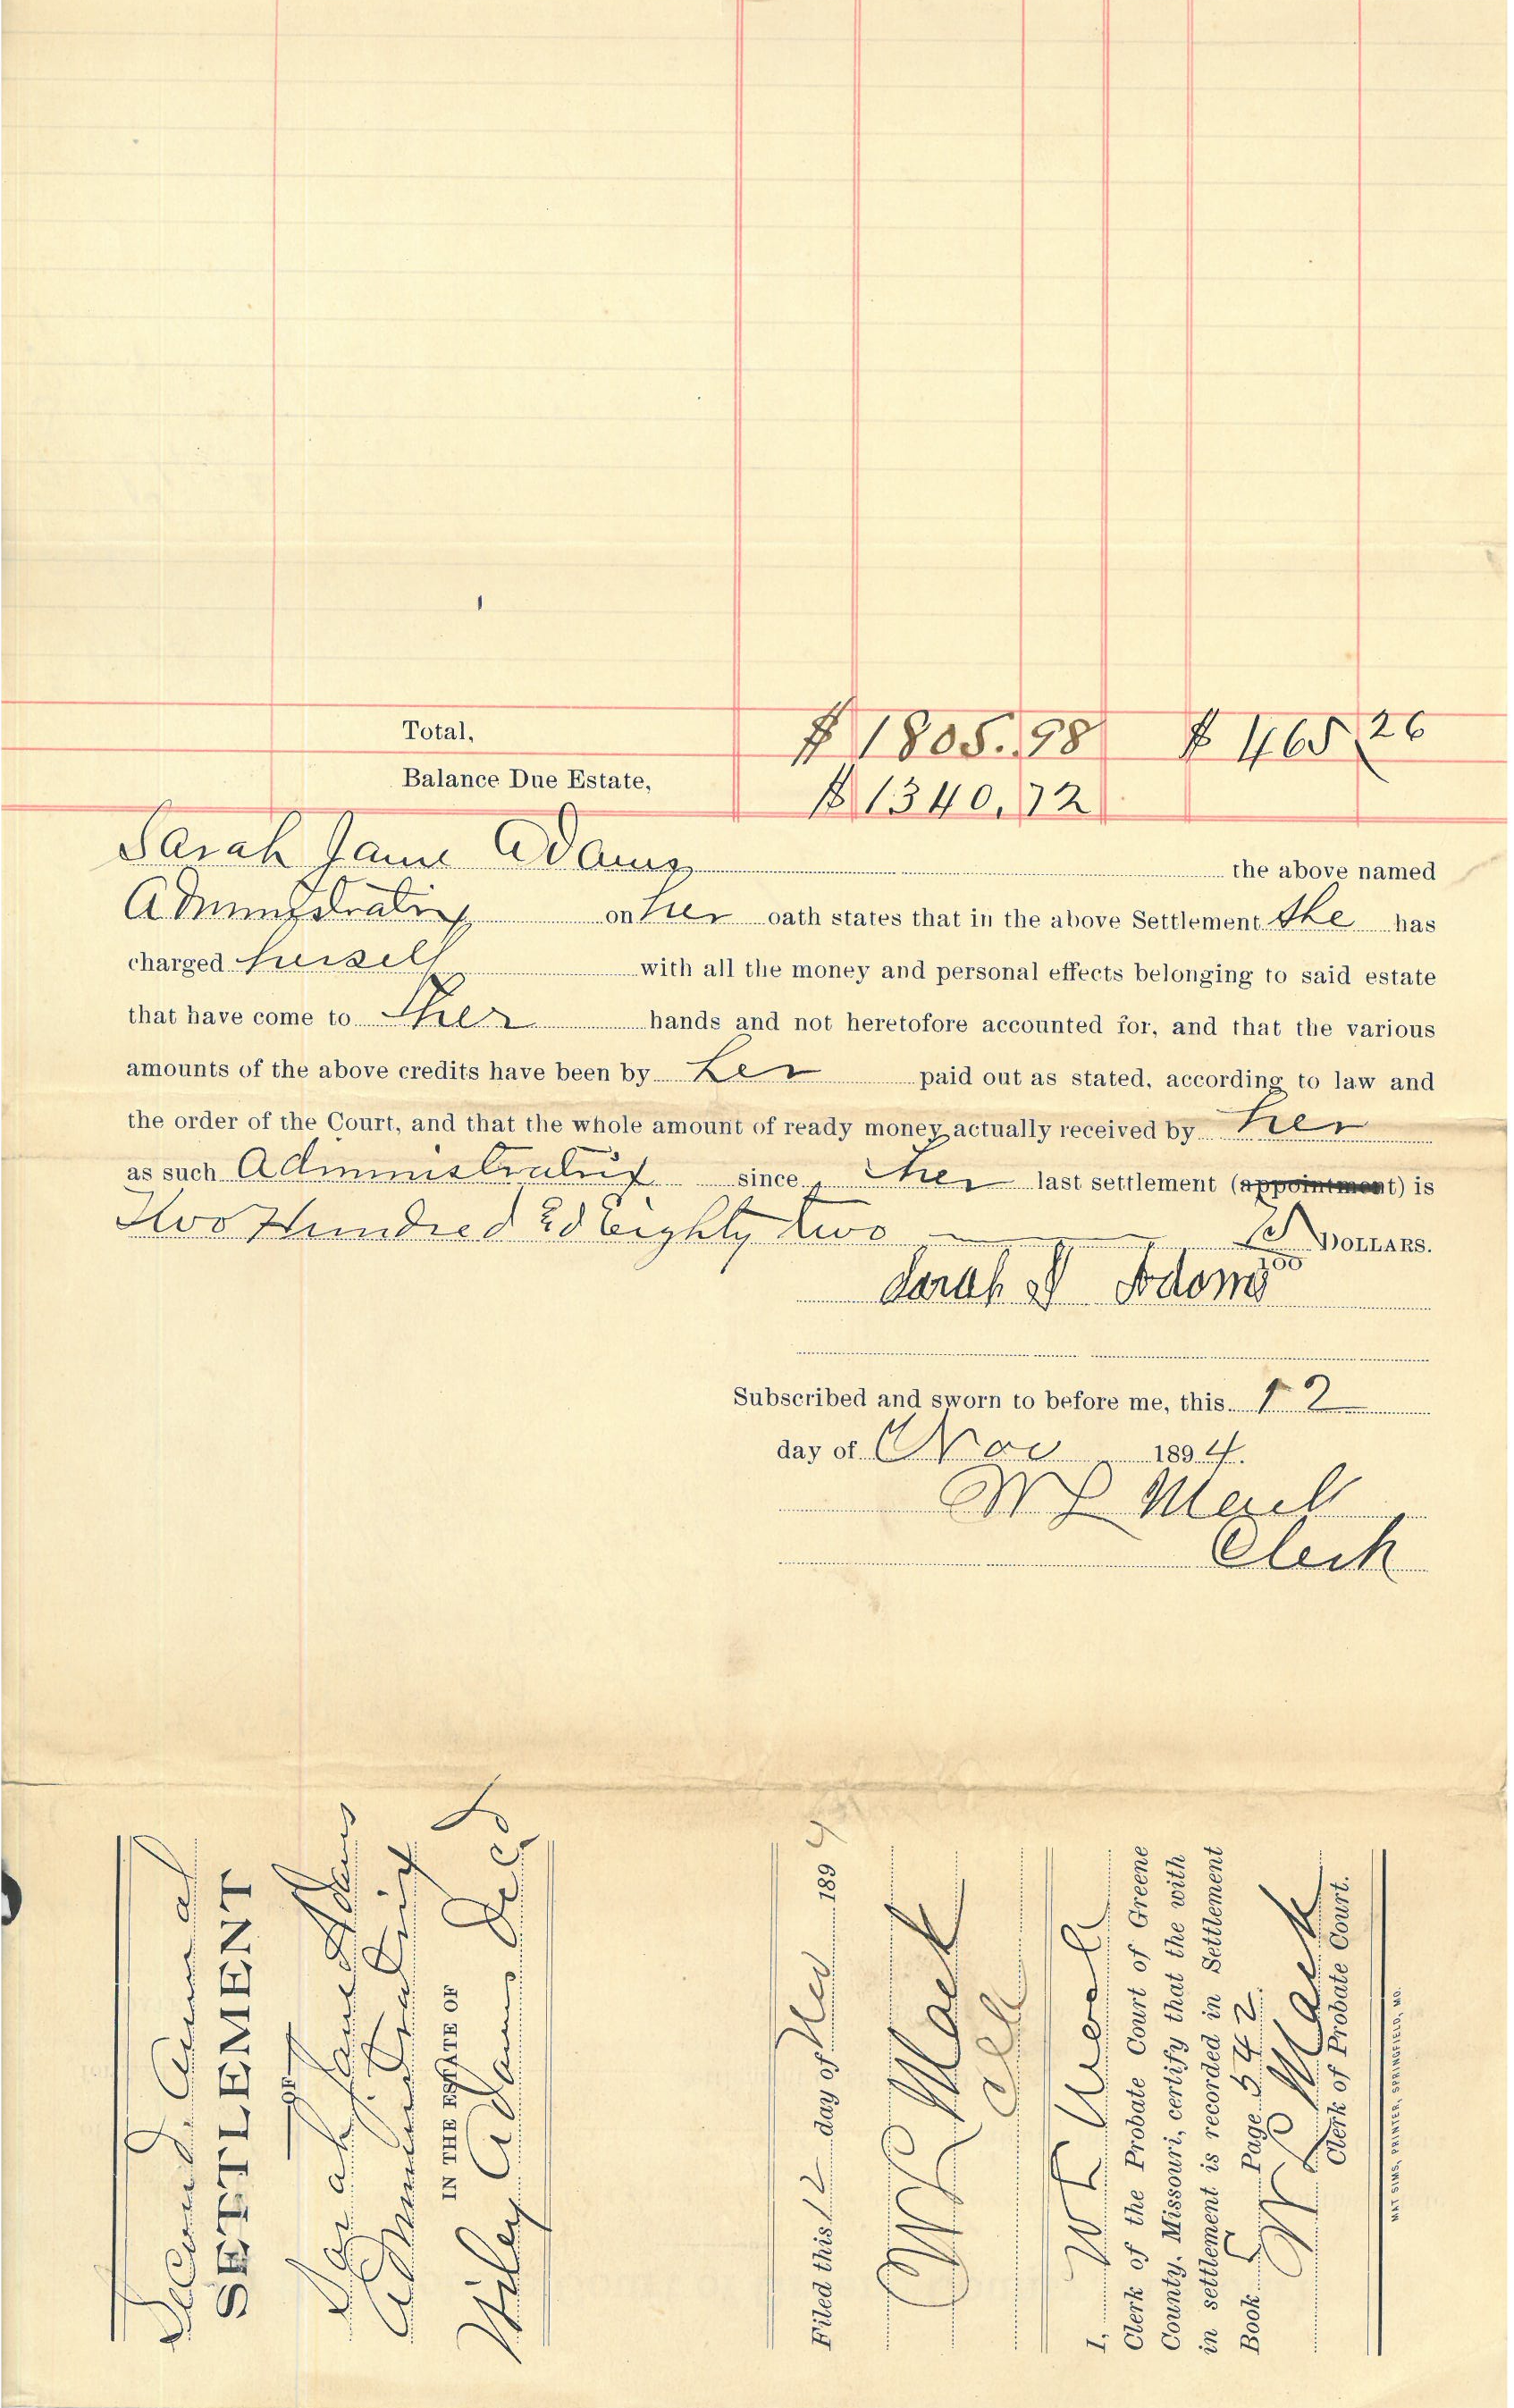 Total, $ 1805.98 $ 465 26
Balance Due Estate, $ 1340.72
Sarah Jane Adams the above named
Administratrix on her oath states that in the above Settlement she has
charged herself with all the money and personal effects belonging to said estate
that have come to her hands and not heretofore accounted for, and that the various
amounts of the above credits have been by her paid out as stated, according to law and
the order of the Court, and that the whole amount of ready money actually received by her
as such Administratrix since her last settlement (appointment) is
Two Hundred & Eighty two DOLLARS.
100
Sarah J Adams
Subscribed and sworn to before me, this 12
day of Nov 1894.
W L Mack
Clerk
Second Annual
SETTLEMENT
OF
Sarah Jane Adams
Administratrix
IN THE ESTATE OF
Wiley Adams Decd
Filed this 12 day of Nov 1894
W L Mack
Clk
I, W L Mack
Clerk of the Probate Court of Greene
County, Missouri, certify that the with
in settlement is recorded in Settlement
Book 5 Page 542.
W L Mack
Clerk of Probate Court.
MAT SIMS, PRINTER, SPRINGFIELD, MO.